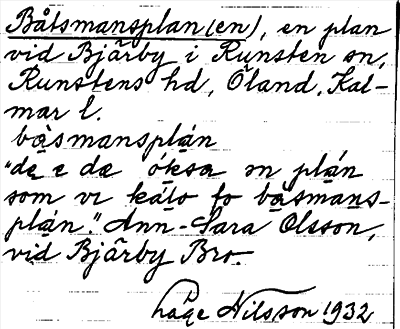 Båtsmansplan(en), en plan
vid Bjärby i Runsten sn,
Runstens hd, Öland, Kal-
mar l.
bàsmansplán
"dę e dæ óksa en plán
som vi kálo fo bàsmans-
plán." Ann-Sara Olsson,
vid Bjärby Bro.
Låge Nilsson 1932